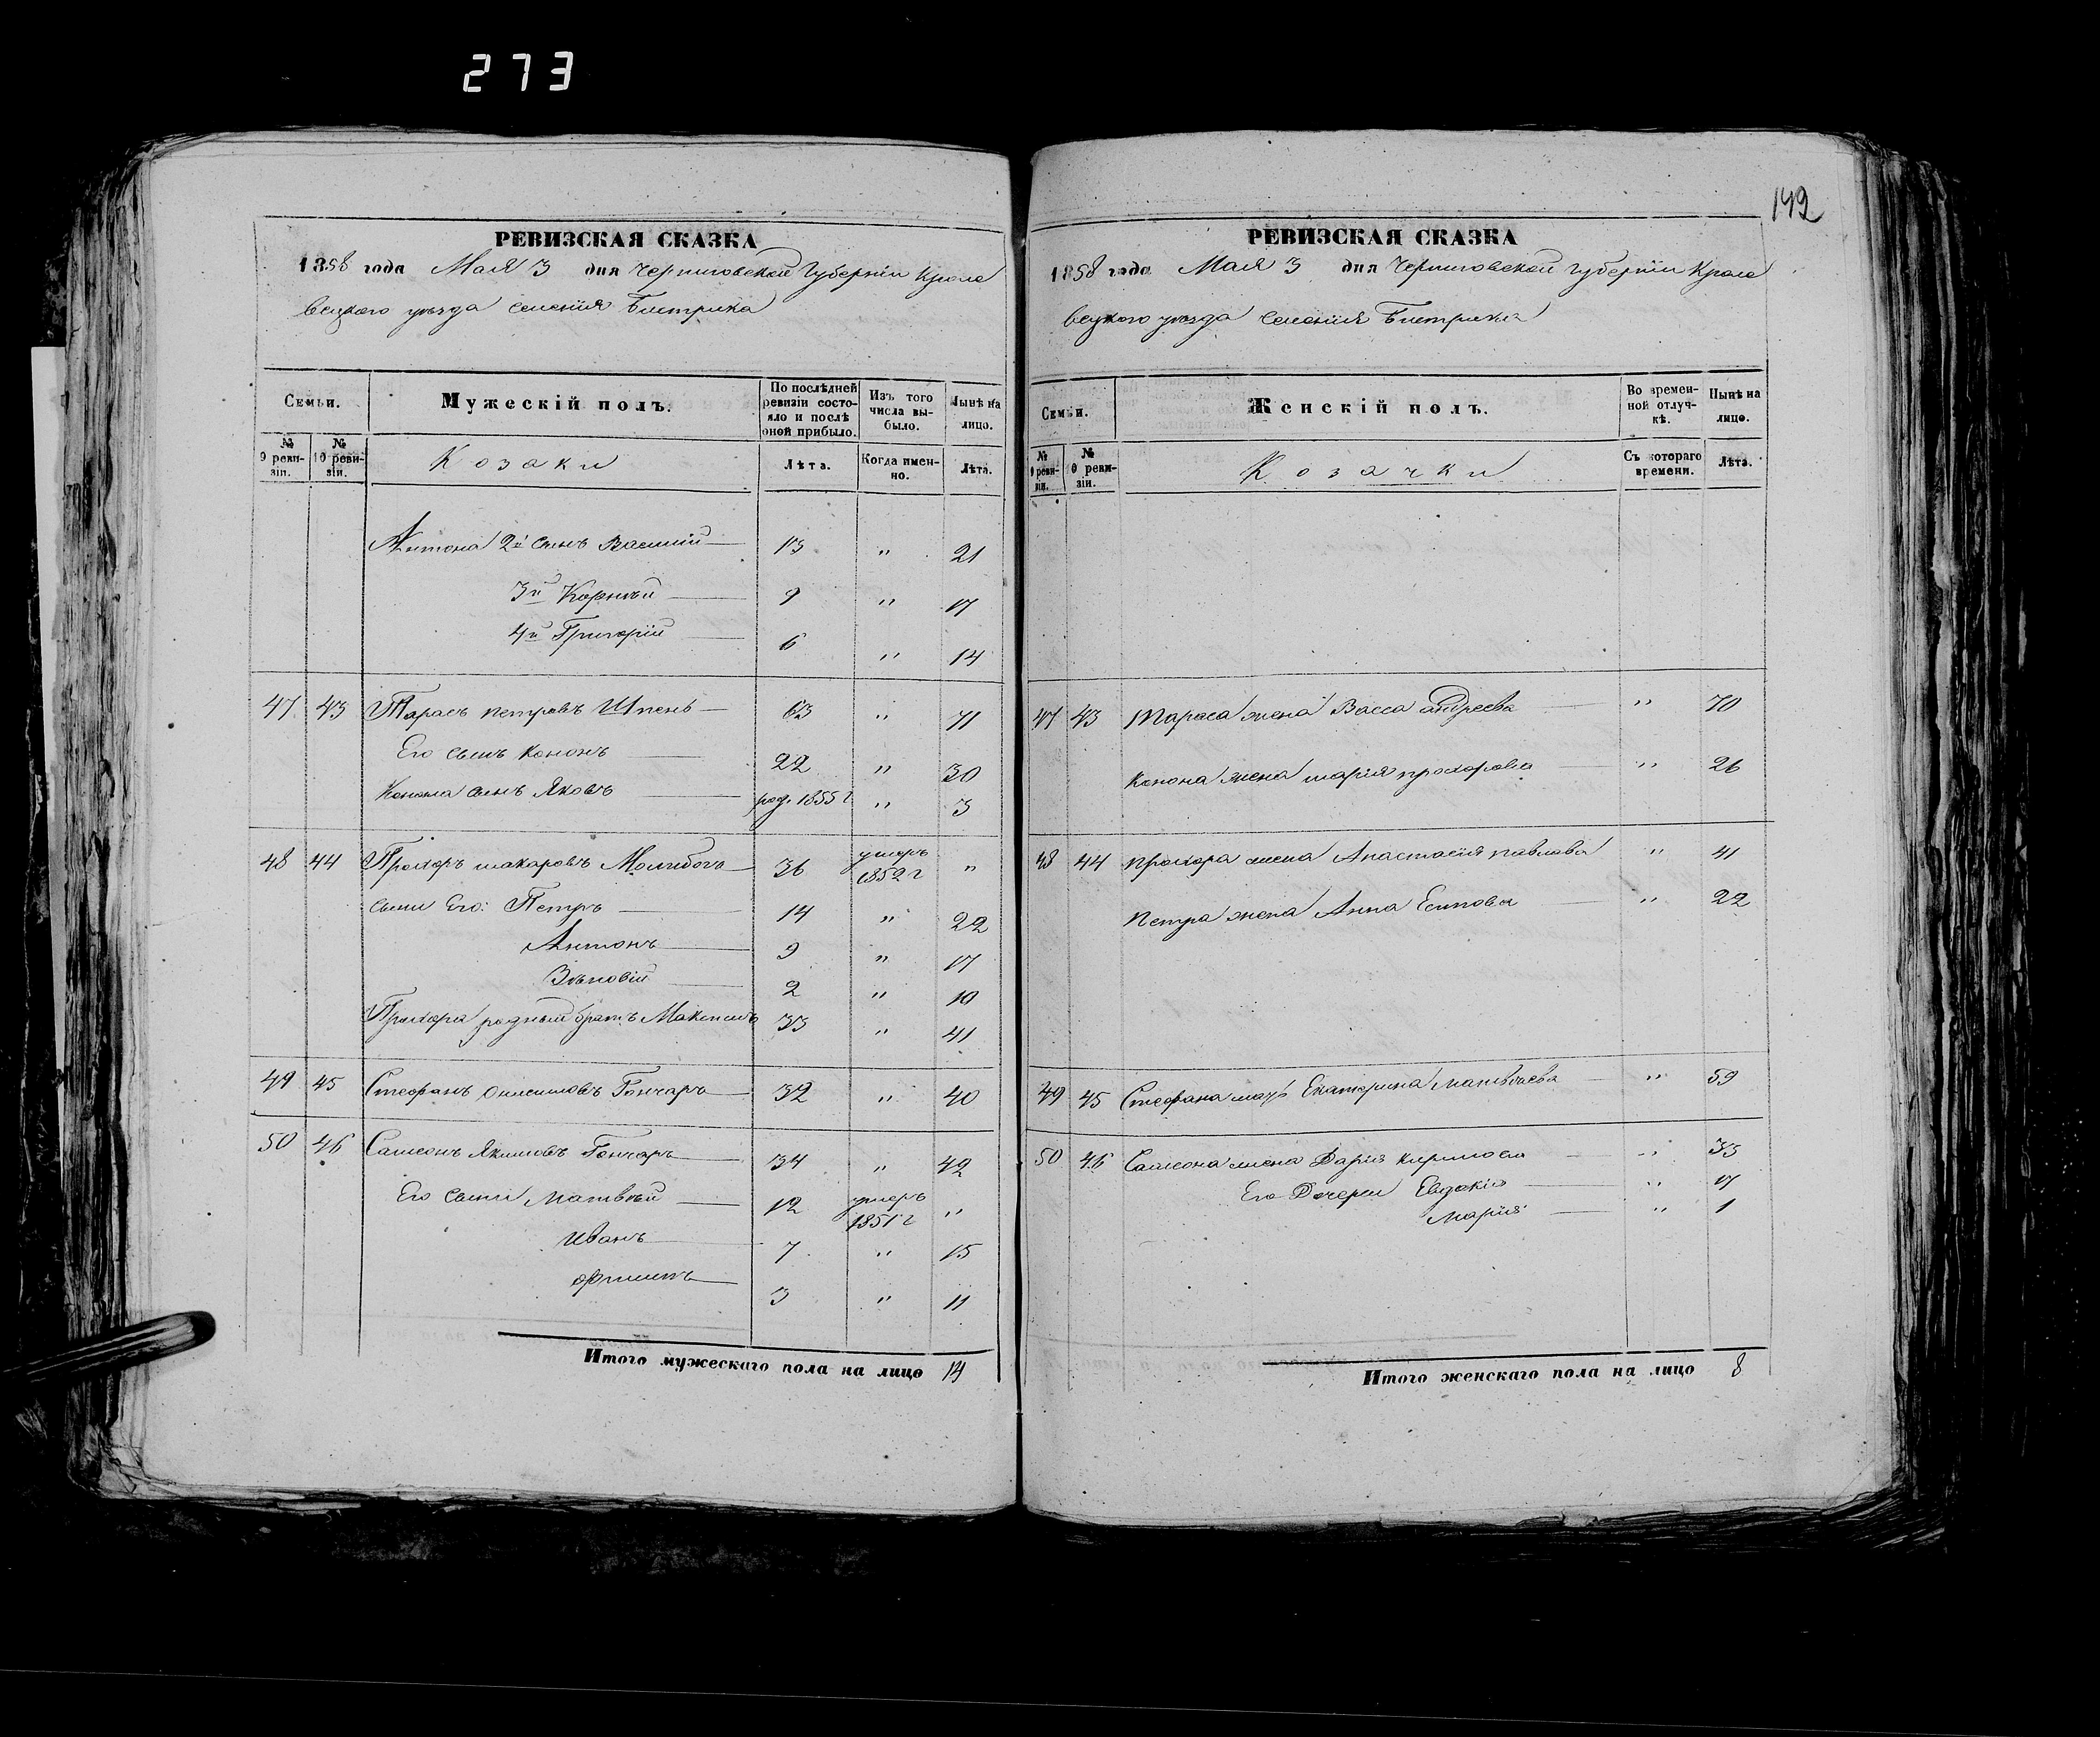 273
142
РЕВИЗСКАЯ СКАЗКА
1858 года Мая 3 дня Черниговской Губерніи Кроле
вецкого уезда селенія Бистрика
Семьи.
Мужескій полъ.
По послѣдней ревизіи состояло и послѣ оной прибыло.
Изъ того числа выбыло.
Нынѣ на лицо.
№ 9 ревизіи.
№ 10 ревизіи.
Козаки
Лѣта.
Когда именно.
Лѣта.
Антона 2й сынъ Василій 13 " 21
3й Корнѣй 9 " 17
4й Григорій 6 " 14
47 43 Тарасъ петровъ Шпень 63 " 71
Его сынъ Кононъ 22 " 30
Конона сынъ Яковъ род. 1855 г " 3
48 44 Прохоръ макаровъ 36 умеръ 1852 г "
сыни Его: Петръ 14 " 22
Антонъ 9 " 17
Зѣновій 2 " 10
Прохора родный братъ Максимъ 33 " 41
49 45 Стефанъ Онисимовъ Гончаръ 32 " 40
50 46 Самсонъ Якимовъ Гончаръ 34 " 42
Его сыни Матвѣй 12 умеръ 1851 г "
Иванъ 7 " 15
Филипъ 3 " 11
Итого мужескаго пола на лицо 14
РЕВИЗСКАЯ СКАЗКА
1858 года Мая 3 дня Черниговской Губерніи Кроле
вецкого уезда селенія Бистрика
Семьи.
Женскій полъ.
Во временной отлучкѣ.
Нынѣ на лицо.
№ 9 ревизіи.
№ 10 ревизіи.
Козачки
Съ котораго времени.
Лѣта.
47 43 Тараса жена Васса андреева " 70
Конона жена марія прохорова " 26
48 44 Прохора жена Анастасія павлова " 41
Петра жена Анна Есипова " 22
49 45 Стефана мать Екатерина Матвѣева " 59
50 46 Самсона жена Дарія Кирилова " 33
Его Дочери Евдокія " 17
Марія " 1
Итого женскаго пола на лицо 8